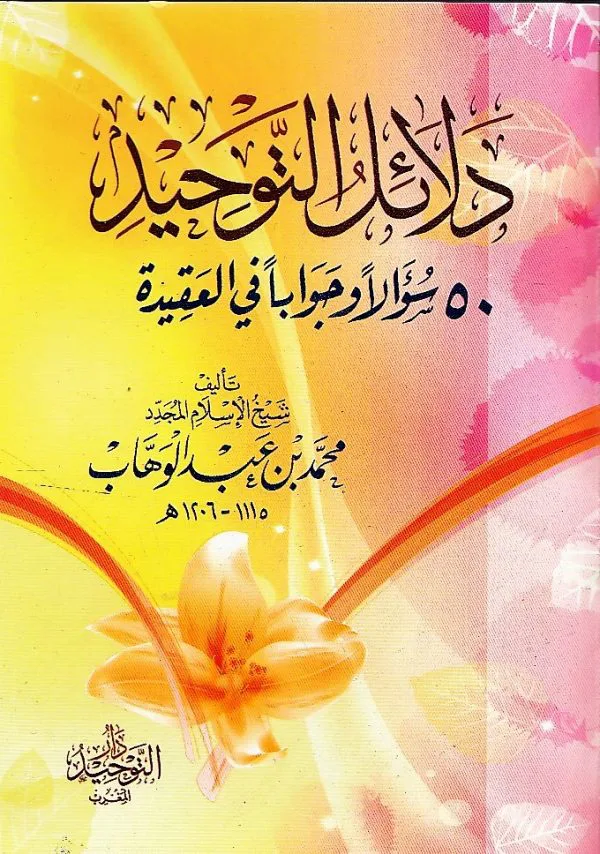 دَلَائِلُ التَّوْحِيْدِ
٥٠ سُؤَالاً وَجَوَاباً فِي العَقِيْدَة
تَأليف
شَيْخُ الإِسْلَام المُجَدِّد
مُحَمَّد بْن عَبْد الوَهَّابْ
١١١٥-١٢٠٦هـ
دَارُ
التَّوْحِيدُ
المَغْرِبُ